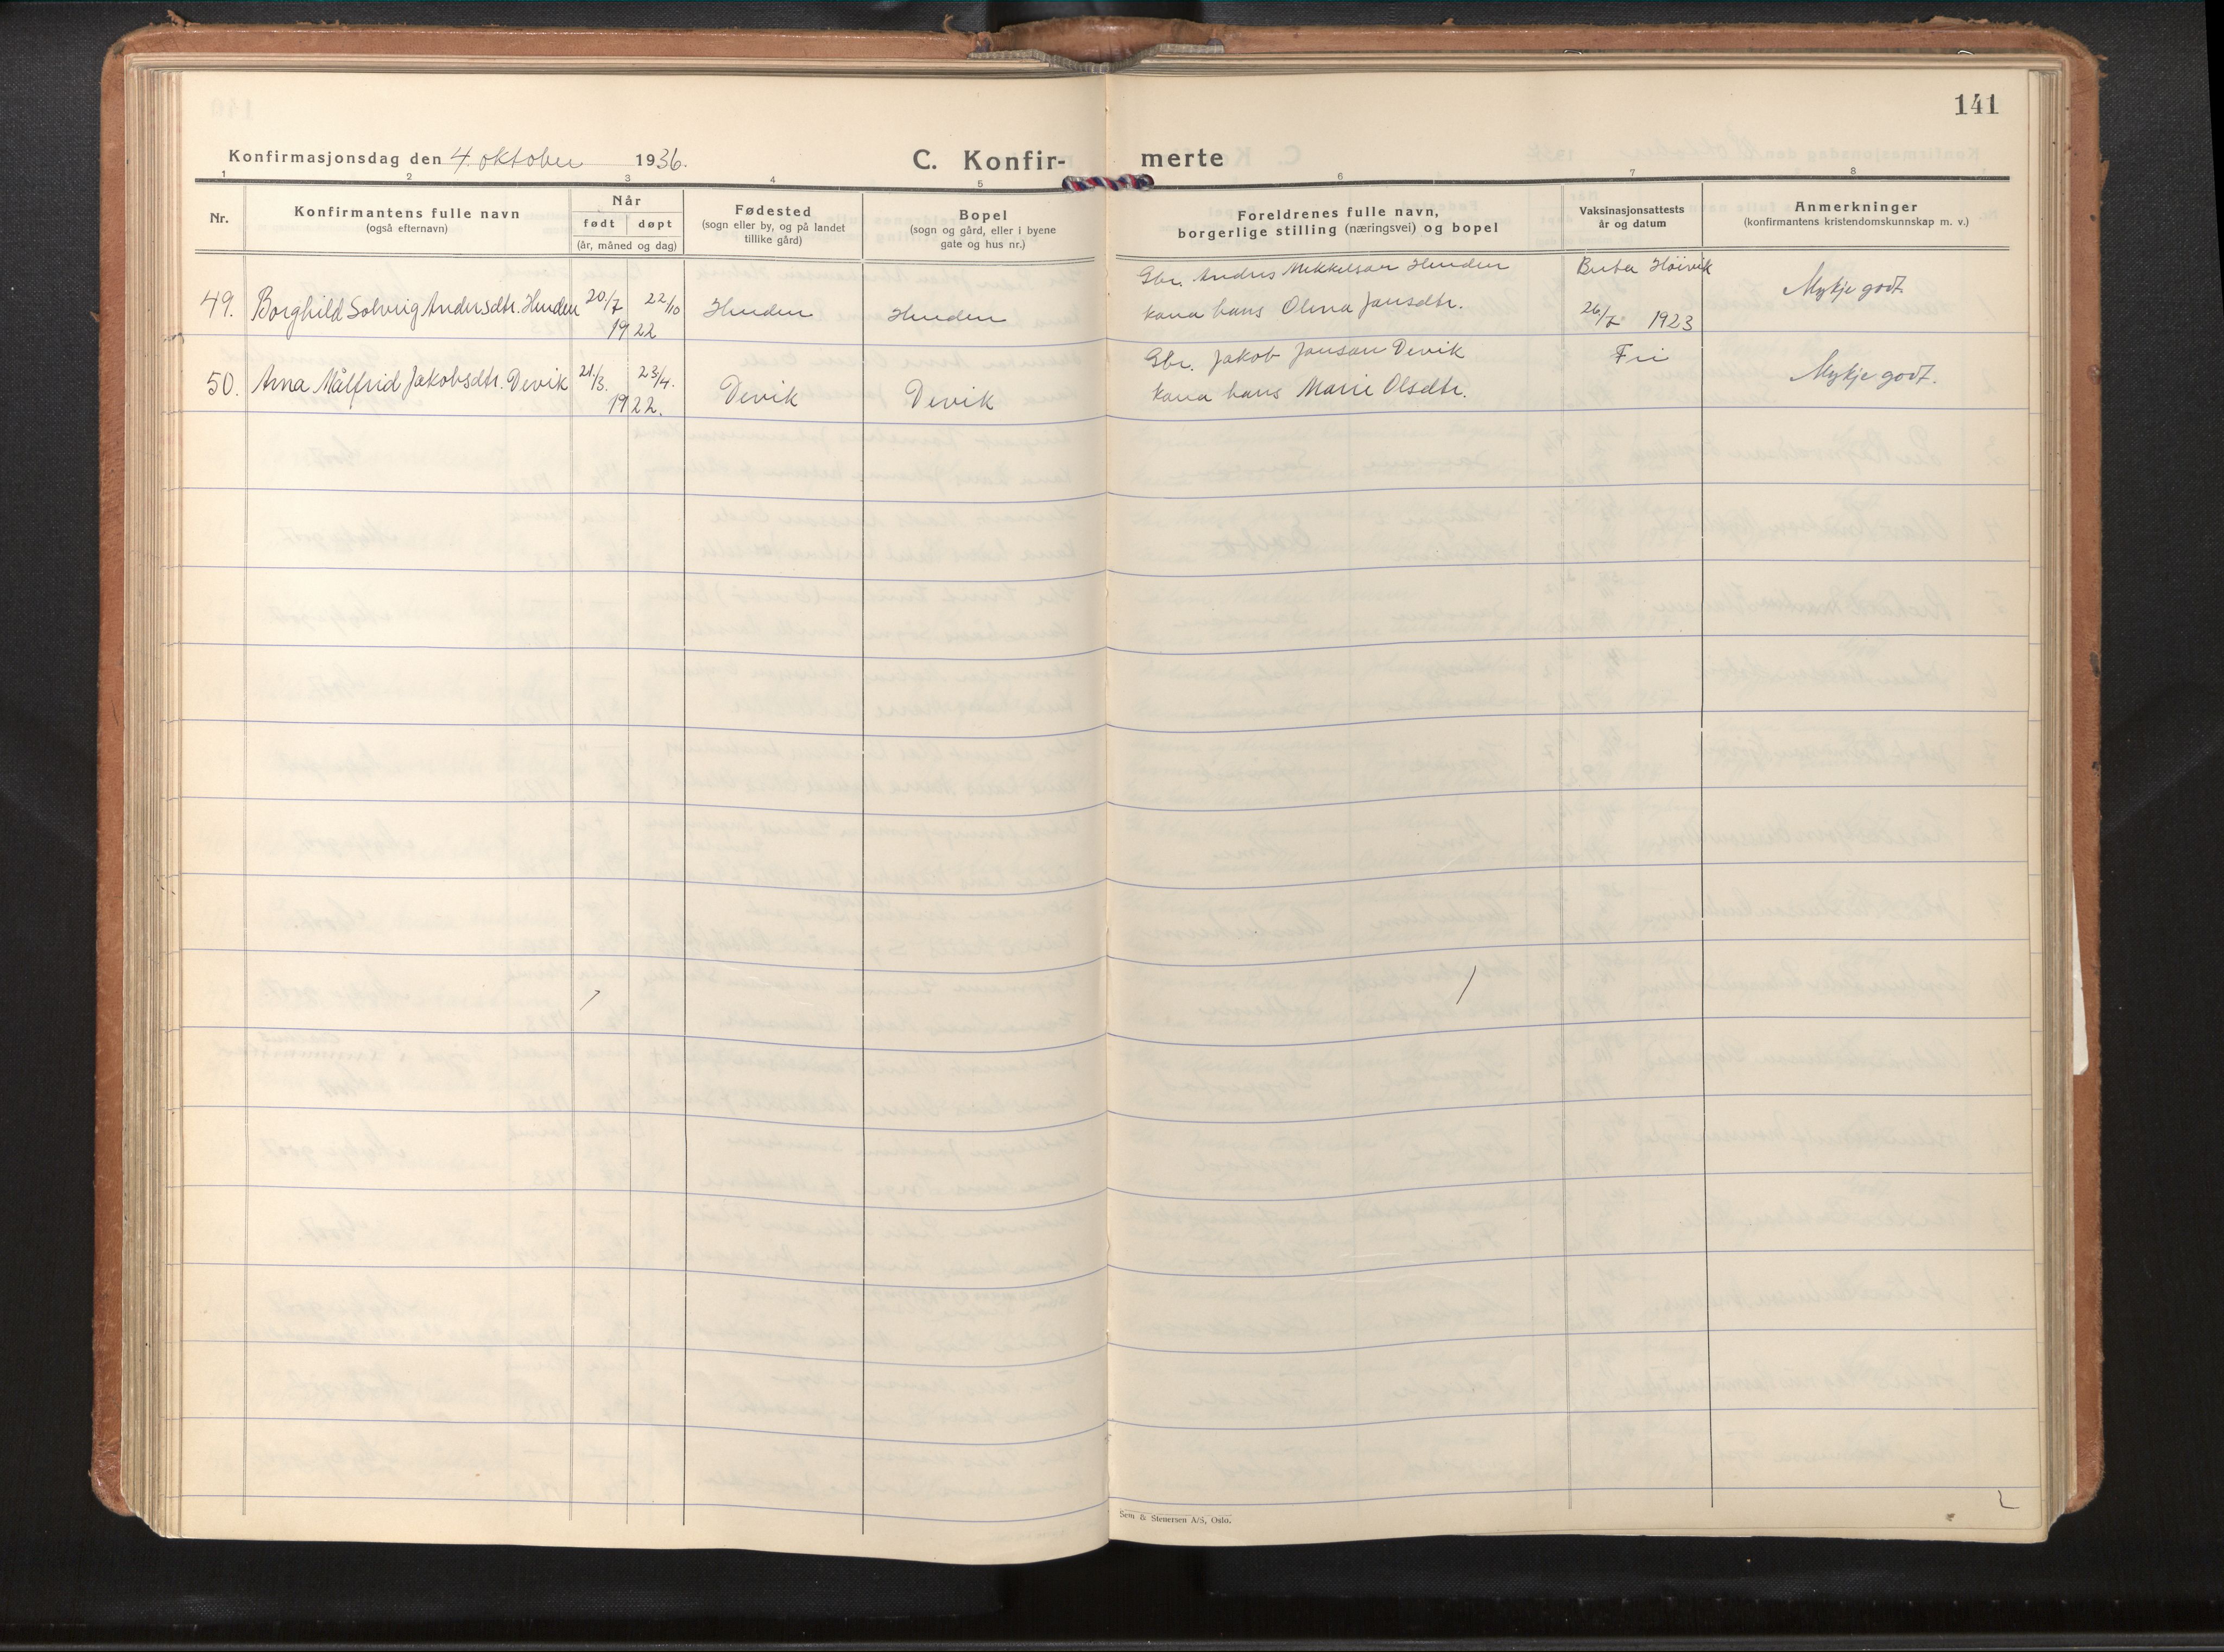 141
Konfirmasjonsdag den 4. oktober 1936.
C. Konfir- merte
1 2 3 4 5 6 7 8
Nr.
Konfirmantens fulle navn
(også efternavn)
Når
født døpt
(år, måned og dag)
Fødested
(sogn eller by, og på landet
tillike gård)
Bopel
(sogn og gård, eller i byene
gate og hus nr.)
Foreldrenes fulle navn,
borgerlige stilling (næringsvei) og bopel
Vaksinasjonsattests
år og datum
Anmerkninger
(konfirmantens kristendomskunnskap m. v.)
Gbr. Andres Mikkelson Henden Berta Höivik
49. Borghild Solveig Andersdtr. Henden 20/7 22/10 Henden Henden kona hans Olena Jansdtr. 26/7 1923 Mykje godt.
1922
Gbr. Jakob Janson Devik Fri
50. Anna Målfrid Jakobsdtr. Devik 21/3. 23/4. Devik Devik kona hans Marie Olsdtr. Mykje godt.
1922.
Sem & Stenersen A/S, Oslo.